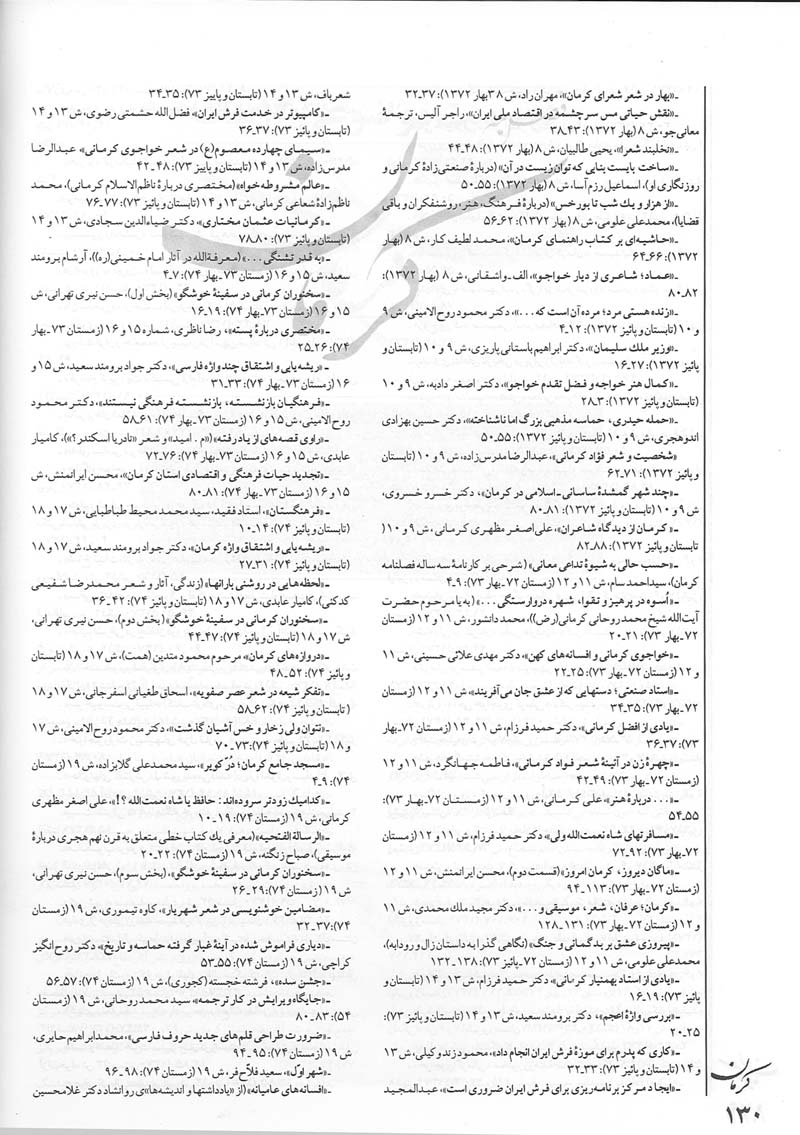 ـ «بهار در شعر شعرای کرمان»، مهران راد، ش ۸ (بهار ۱۳۷۲): ۳۷ـ۳۲
ـ «نقش حیاتی مس سرچشمه در اقتصاد ملی ایران»، راجر آلیس، ترجمهٔ
معانی‌جو، ش ۸ (بهار ۱۳۷۲): ۴۳ـ۳۸
ـ «نخلبند شعرا»، یحیی طالبیان، ش ۸ (بهار ۱۳۷۲): ۴۸ـ۴۴
ـ «ساخت بایست بنایی که توان زیست در آن» (دربارهٔ صنعتی‌زادهٔ کرمانی و
روزنگاری او)، اسماعیل رزم‌آسا، ش ۸ (بهار ۱۳۷۲): ۵۵ـ۵۰
ـ «از هزار و یك شب تا بورخس» (دربارهٔ فرهنگ، هنر، روشنفکران و باقی
قضایا)، محمدعلی علومی، ش ۸ (بهار ۱۳۷۲): ۶۲ـ۵۶
ـ «حاشیه‌ای بر کتاب راهنمای کرمان»، محمد لطیف کار، ش ۸ (بهار
۱۳۷۲): ۶۶ـ۶۴
ـ «عماد؛ شاعری از دیار خواجو»، الف ـ واشقانی، ش ۸ (بهار ۱۳۷۲):
۸۲ـ۸۰
ـ «زنده هستی مرد؛ مرده آن است که...»، دکتر محمود روح‌الامینی، ش ۹
و ۱۰ (تابستان و پائیز ۱۳۷۲): ۱۲ـ۴
ـ «وزیر ملك سلیمان»، دکتر ابراهیم باستانی پاریزی، ش ۹ و ۱۰ (تابستان و
پائیز ۱۳۷۲): ۲۷ـ۱۶
ـ «کمال هنر خواجه و فضل تقدم خواجو»، دکتر اصغر دادبه، ش ۹ و ۱۰
(تابستان و پائیز ۱۳۷۲): ۳ـ۲۸
ـ «حمله حیدری، حماسه مذهبی بزرگ اما ناشناخته»، دکتر حسین بهزادی
اندوهجری، ش ۹ و ۱۰ (تابستان و پائیز ۱۳۷۲): ۵۵ـ۵۰
«شخصیت و شعر فؤاد کرمانی»، عبدالرضا مدرس‌زاده، ش ۹ و ۱۰ (تابستان
و پائیز ۱۳۷۲): ۷۱ـ۶۲
ـ «چند شهر گمشدهٔ ساسانی ـ اسلامی در کرمان»، دکتر خسرو خسروی،
ش ۹ و ۱۰ (تابستان و پائیز ۱۳۷۲): ۸۱ـ۸۰
ـ «کرمان از دیدگاه شاعران»، علی‌اصغر مظهری کرمانی، ش ۹ و ۱۰ (
تابستان و پائیز ۱۳۷۲): ۸۸ـ۸۲
ـ «حسب حالی به شیوهٔ تداعی معانی» (شرحی بر کارنامهٔ سه ساله فصلنامه
کرمان)، سیداحمد سام، ش ۱۱ و ۱۲ (زمستان ۷۲ـ بهار ۷۳): ۹ـ۴
ـ «اُسوه در پرهیز و تقوا، شهره در وارستگی...» (به یاد مرحوم حضرت
آیت‌الله شیخ محمد روحانی کرمانی(رض))، محمد دانشور، ش ۱۱ و ۱۲ (زمستان
۷۲ـ بهار ۷۳): ۲۱ـ۲۰
ـ «خواجوی کرمانی و افسانه‌های کهن»، دکتر مهدی علائی حسینی، ش ۱۱
و ۱۲ (زمستان ۷۲ـ بهار ۷۳): ۲۵ـ۲۲
ـ «استاد صنعتی؛ دستهایی که از عشق جان می‌آفریند»، ش ۱۱ و ۱۲ (زمستان
۷۲ـ بهار ۷۳): ۳۵ـ۳۴
ـ «یادی از افضل کرمانی»، دکتر حمید فرزام، ش ۱۱ و ۱۲ (زمستان ۷۲ـ بهار
۷۳): ۳۷ـ۳۶
ـ «چهرهٔ زن در آئینهٔ شعر فواد کرمانی»، فاطمه جهانگرد، ش ۱۱ و ۱۲
(زمستان ۷۲ـ بهار ۷۳): ۴۹ـ۴۲
ـ «... دربارهٔ هنر»، علی کرمانی، ش ۱۱ و ۱۲ (زمستان ۷۲ـ بهار ۷۳):
۵۵ـ۵۴
ـ «مسافرتهای شاه نعمت‌الله ولی» دکتر حمید فرزام، ش ۱۱ و ۱۲ (زمستان
۷۲ـ بهار ۷۳): ۹۲ـ۷۲
ـ «ماگان دیروز، کرمان امروز» (قسمت دوم)، محسن ایرانمنش، ش ۱۱ و ۱۲
(زمستان ۷۲ـ بهار ۷۳): ۱۱۳ـ۹۴
ـ «کرمان؛ عرفان، شعر، موسیقی و...»، دکتر مجید ملك محمدی، ش ۱۱
و ۱۲ (زمستان ۷۲ـ بهار ۷۳): ۱۳۱ـ۱۲۸
ـ «پیروزی عشق بر بدگمانی و جنگ» (نگاهی گذرا به داستان زال و رودابه)،
محمدعلی علومی، ش ۱۱ و ۱۲ (زمستان ۷۲ـ پائیز ۷۳): ۱۳۸ـ۱۳۲
ـ «یادی از استاد بهمنیار کرمانی» دکتر حمید فرزام، ش ۱۳ و ۱۴ (تابستان و
پائیز ۷۳): ۱۹ـ۱۶
ـ «بررسی واژهٔ اعجم»، دکتر برومند سعید، ش ۱۳ و ۱۴ (تابستان و پائیز ۷۳):
۲۵ـ۲۰
ـ «کاری که پدرم برای موزهٔ فرش ایران انجام داد»، محمود زند وکیلی، ش ۱۳
و ۱۴ (تابستان و پائیز ۷۳): ۳۳ـ۳۲
ـ «ایجاد مرکز برنامه‌ریزی برای فرش ایران ضروری است»، عبدالمجید
شعرباف، ش ۱۳ و ۱۴ (تابستان و پاییز ۷۳): ۳۵ـ۳۴
ـ «کامپیوتر در خدمت فرش ایران» فضل‌الله حشمتی رضوی، ش ۱۳ و ۱۴
(تابستان و پائیز ۷۳): ۳۷ـ۳۶
ـ «سیمای چهارده معصوم(ع) در شعر خواجوی کرمانی» عبدالرضا
مدرس‌زاده، ش ۱۳ و ۱۴ (تابستان و پاییز ۷۳): ۴۸ـ۴۲
ـ «عالم مشروطه‌خواه» (مختصری دربارهٔ ناظم‌الاسلام کرمانی)، محمد
ناظم‌زادهٔ شعاعی کرمانی، ش ۱۳ و ۱۴ (تابستان و پائیز ۷۳): ۷۷ـ۷۶
ـ «کرمانیات عثمان مختاری»، دکتر ضیاءالدین سجادی، ش ۱۳ و ۱۴
(تابستان و پائیز ۷۳): ۸۰ـ۷۸
ـ «به قدر تشنگی...» (معرفةالله در آثار امام خمینی(ره))، آرشام برومند
سعید، ش ۱۵ و ۱۶ (زمستان ۷۳ـ بهار ۷۴): ۷ـ۴
ـ «سخنوران کرمانی در سفینهٔ خوشگو» (بخش اول)، حسن نیری تهرانی، ش
۱۵ و ۱۶ (زمستان ۷۳ـ بهار ۷۴): ۱۹ـ۱۶
ـ «مختصری دربارهٔ پسته»، رضا ناظری، شماره ۱۵ و ۱۶ (زمستان ۷۳ـ بهار
۷۴): ۲۶ـ۲۵
ـ «ریشه‌یابی و اشتقاق چند واژه فارسی»، دکتر جواد برومند سعید، ش ۱۵ و
۱۶ (زمستان ۷۳ـ بهار ۷۴): ۳۳ـ۳۱
ـ «فرهنگیان بازنشسته، بازنشسته فرهنگی نیستند»، دکتر محمود
روح‌الامینی، ش ۱۵ و ۱۶ (زمستان ۷۳ـ بهار ۷۴): ۶۱ـ۵۸
ـ «راوی قصه‌های از یاد رفته» («م . امید» و شعر «نادر یا اسکندر؟»)، کامیار
عابدی، ش ۱۵ و ۱۶ (زمستان ۷۳ـ بهار ۷۴): ۷۶ـ۷۲
ـ «تجدید حیات فرهنگی و اقتصادی استان کرمان»، محسن ایرانمنش، ش
۱۵ و ۱۶ (زمستان ۷۳ـ بهار ۷۴): ۸۱ـ۸۰
ـ «فرهنگستان»، استاد فقید، سید محمد محیط طباطبایی، ش ۱۷ و ۱۸
(تابستان و پائیز ۷۴): ۱۴ـ۱۰
ـ «ریشه‌یابی و اشتقاق واژه کرمان»، دکتر جواد برومند سعید، ش ۱۷ و ۱۸
(تابستان و پائیز ۷۴): ۳۱ـ۲۷
ـ «لحظه‌هایی در روشنی بارانها» (زندگی، آثار و شعر محمدرضا شفیعی
کدکنی)، کامیار عابدی، ش ۱۷ و ۱۸ (تابستان و پائیز ۷۴): ۴۲ـ۳۶
ـ «سخنوران کرمانی در سفینهٔ خوشگو» (بخش دوم)، حسن نیری تهرانی،
ش ۱۷ و ۱۸ (تابستان و پائیز ۷۴): ۴۷ـ۴۴
ـ «دروازه‌های کرمان»، مرحوم محمود متدین (همت)، ش ۱۷ و ۱۸ (تابستان
و پائیز ۷۴): ۵۲ـ۴۸
ـ «تفکر شیعه در شعر عصر صفویه»، اسحاق طغیانی اسفرجانی، ش ۱۷ و ۱۸
(تابستان و پائیز ۷۴): ۶۲ـ۵۸
ـ «نتوان ولی زخار و خس آشیان گذشت»، دکتر محمود روح‌الامینی، ش ۱۷
و ۱۸ (تابستان و پائیز ۷۴): ۷۳ـ۷۰
ـ «مسجد جامع کرمان؛ دُرّ کویر»، سید محمدعلی گلابزاده، ش ۱۹ (زمستان
۷۴): ۹ـ۴
ـ «کدامیك زودتر سروده‌اند: حافظ یا شاه نعمت‌الله ؟!»، علی اصغر مظهری
کرمانی، ش ۱۹ (زمستان ۷۴): ۱۹ـ۱۰
ـ «الرسالة الفتحیه» (معرفی یك کتاب خطی متعلق به قرن نهم هجری دربارهٔ
موسیقی)، صباح زنگنه، ش ۱۹ (زمستان ۷۴): ۲۲ـ۲۰
ـ «سخنوران کرمانی در سفینهٔ خوشگو»، (بخش سوم)، حسن نیری تهرانی،
ش ۱۹ (زمستان ۷۴): ۲۹ـ۲۶
ـ «مضامین خوشنویسی در شعر شهریار»، کاوه تیموری، ش ۱۹ (زمستان
۷۴): ۳۷ـ۳۲
ـ «دیاری فراموش شده در آینهٔ غبار گرفته حماسه و تاریخ»، دکتر روح‌انگیز
کراچی، ش ۱۹ (زمستان ۷۴): ۵۵ـ۵۳
ـ «جشن سده»، فرشته خجسته (کجوری)، ش ۱۹ (زمستان ۷۴): ۵۷ـ۵۶
ـ «جایگاه ویرایش در کار ترجمه»، سید محمد روحانی، ش ۱۹ (زمستان
۵۴): ۸۳ـ۸۰
ـ «ضرورت طراحی قلم‌های جدید حروف فارسی»، محمدابراهیم حایری،
ش ۱۹ (زمستان ۷۴): ۹۵ـ۹۴
ـ «شهر اول»، سعید فلاّح‌فر، ش ۱۹ (زمستان ۷۴): ۹۸ـ۹۶
ـ «افسانه‌های عامیانه» (از «یادداشتها و اندیشه‌ها»ی روانشاد دکتر غلامحسین
کرمان
۱۳۰